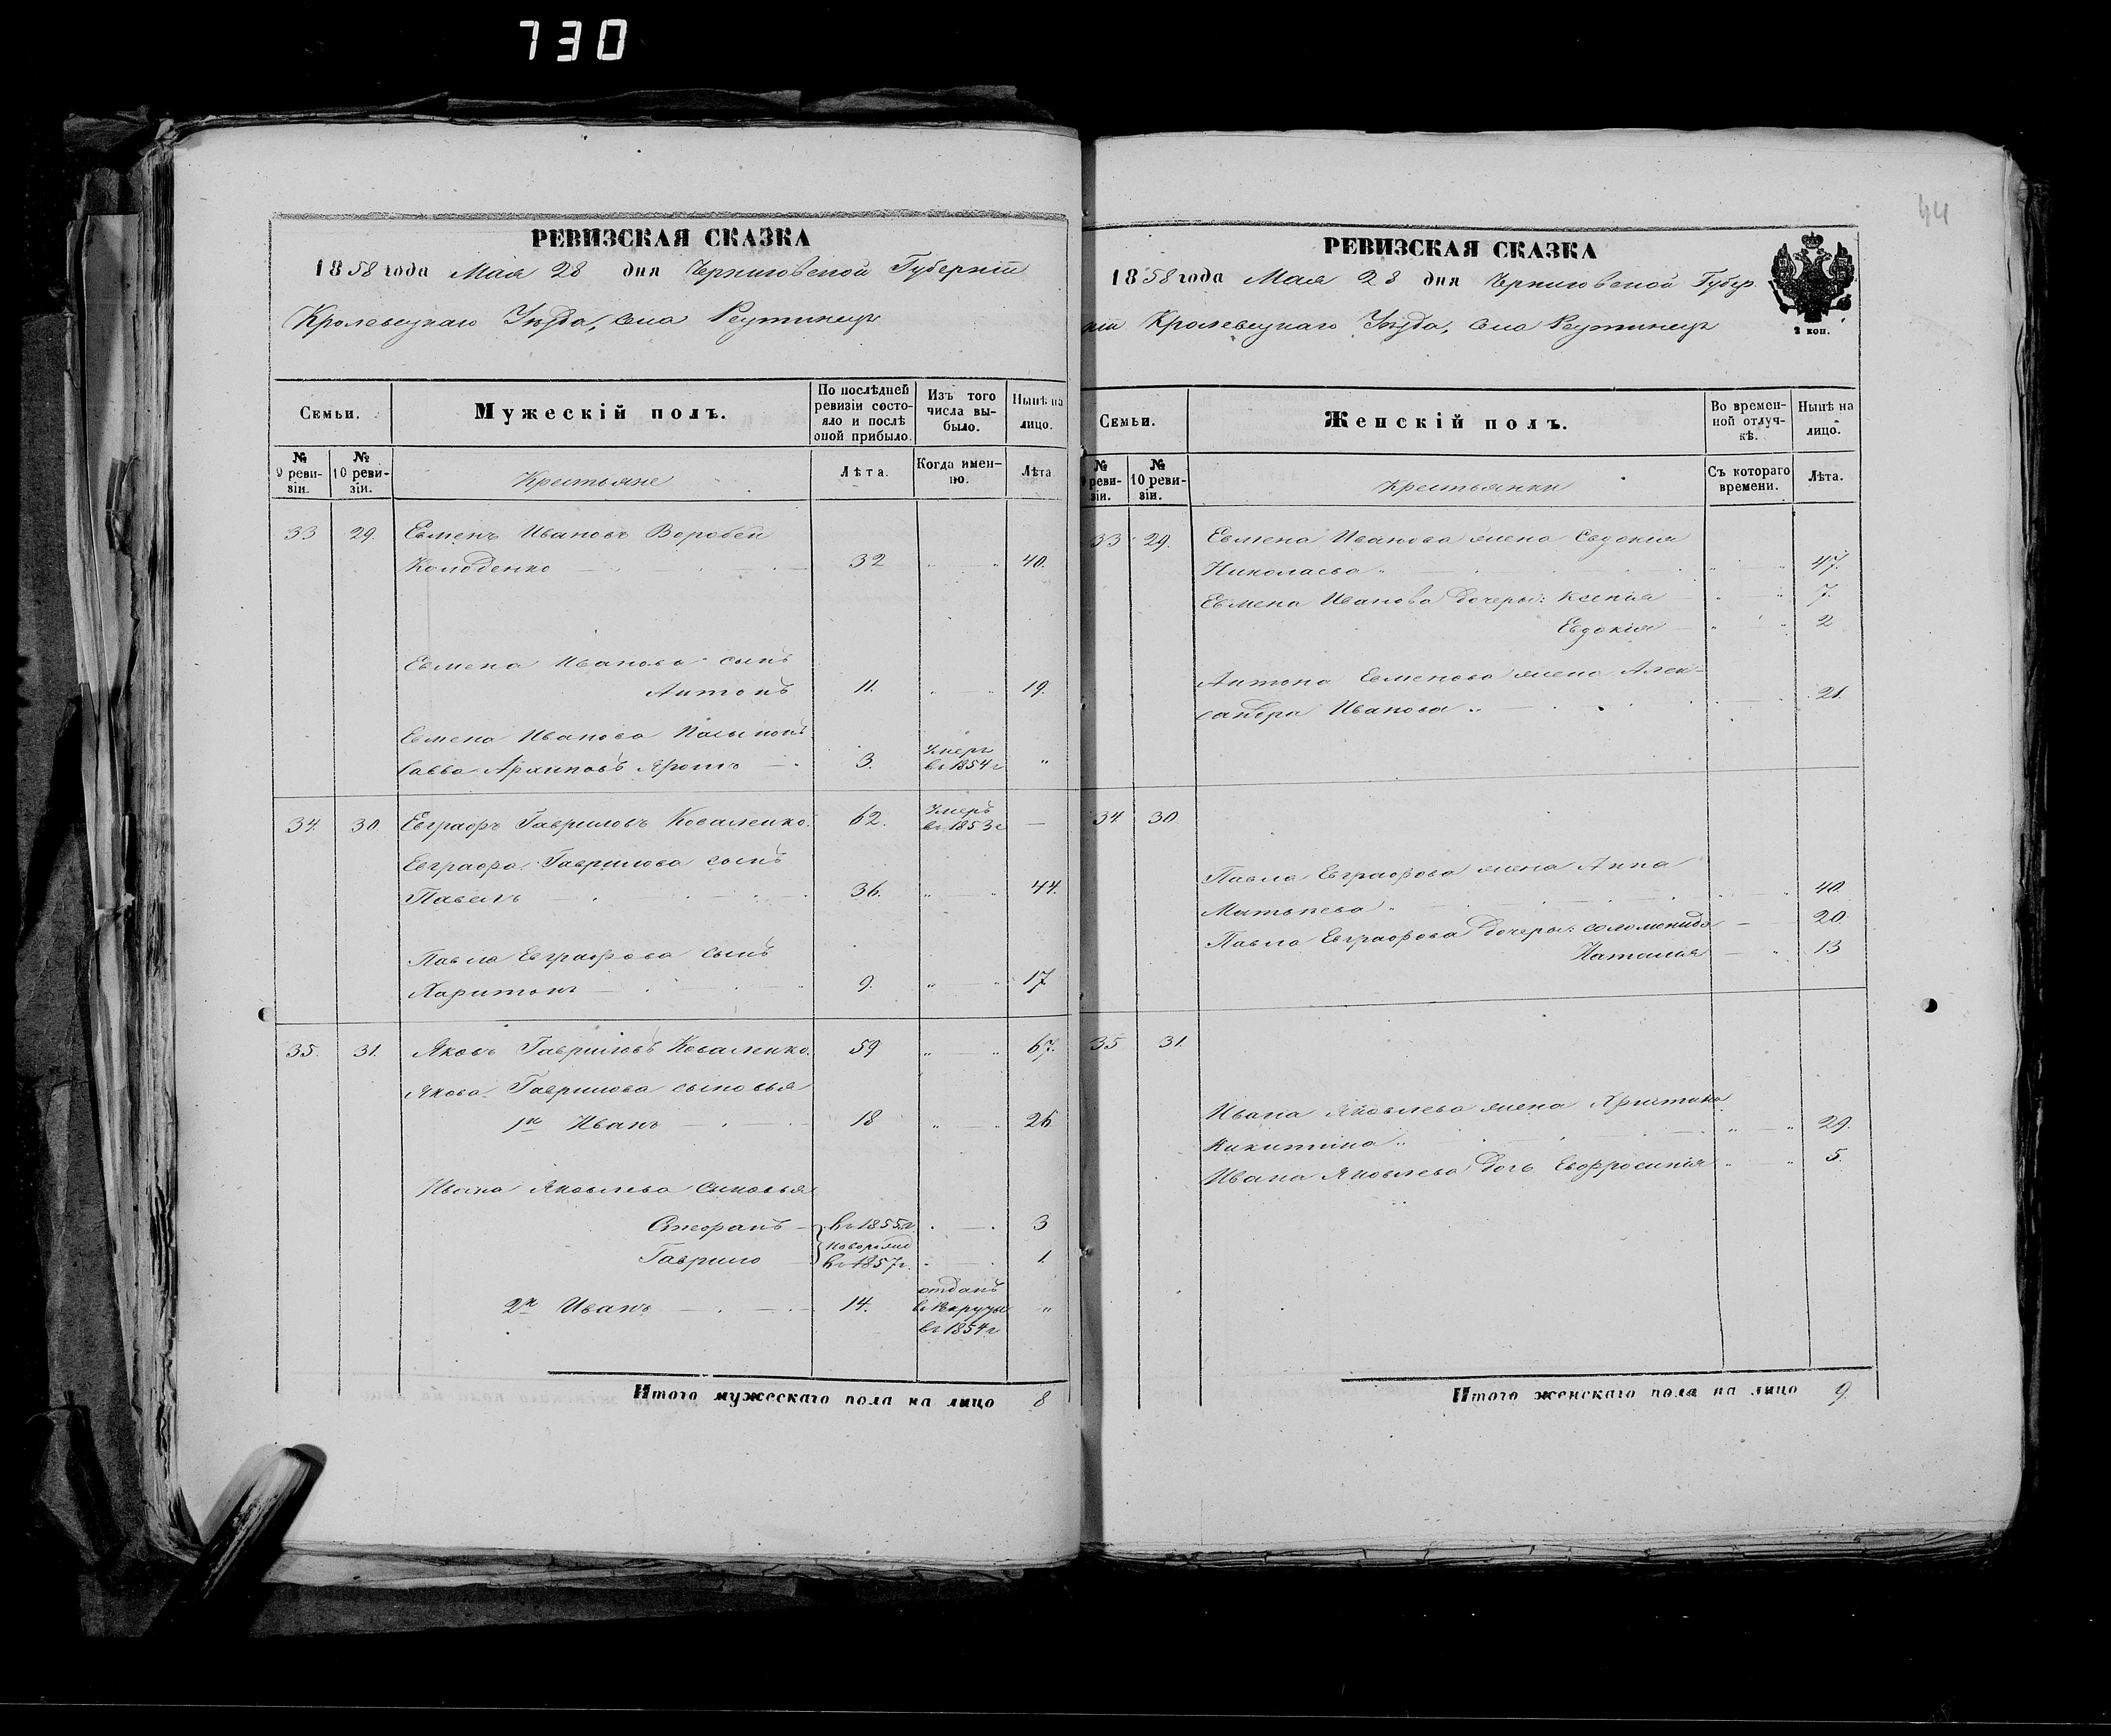 730
44
РЕВИЗСКАЯ СКАЗКА
1858 года Мая 28 дня Черниговской Губерніи
Кролевецкаго Уѣзда, Села Реутинецъ
Семьи.
Мужескій полъ.
По послѣдней ревизіи состояло и послѣ оной прибыло.
Изъ того числа выбыло.
Нынѣ на лицо.
№ 9 ревизіи.
№ 10 ревизіи.
Крестьяне
Лѣта.
Когда именно.
Лѣта
33 29. Евменъ Ивановъ Воробей
Колоденко 32 40.
Евмена Иванова сынъ
Антонъ 11. 19.
Евмена Иванова
Савва Архиповъ 3. Умеръ въ 1854 г
34. 30. Евграфъ Гавриловъ Коваленко. 62. Умеръ въ 1853 г —
Евграфа Гаврилова сынъ
Павелъ 36. 44.
Павла Евграфова сынъ
Харитонъ 9. 17.
35. 31. Яковъ Гавриловъ Коваленко. 59 67.
Якова Гаврилова сыновья
1й Иванъ 18 26
Ивана Яковлева сыновья
Стефанъ въ 1855 г 3
Гаврило новорожд въ 1857 г. 1.
2й Иванъ 14. отданъ въ рекруты въ 1854 г
Итого мужескаго пола на лицо 8
РЕВИЗСКАЯ СКАЗКА
1858 года Мая 28 дня Черниговской Губер
ніи Кролевецкаго Уѣзда, Села Реутинецъ
2 коп.
Семьи.
Женскій полъ.
Во временной отлучкѣ.
Нынѣ на лицо.
№ ревизіи.
№ 10 ревизіи.
Крестьянки
Съ котораго времени.
Лѣта.
33 29. Евмена Иванова жена Евдокия
Николаева 47.
Евмена Иванова дочери: Ксенія 7.
Евдокія 2
Антона Евменова жена Алек-
сандра Иванова 21.
34 30
Павла Евграфова жена Анна
Матвѣева 40
Павла Евграфова дочери: Соломонида 20
Наталія 13
35 31.
Ивана Яковлева жена Христина
Никитина 29.
Ивана Яковлева дочь Евфросинія 5.
Итого женскаго пола на лицо 9.